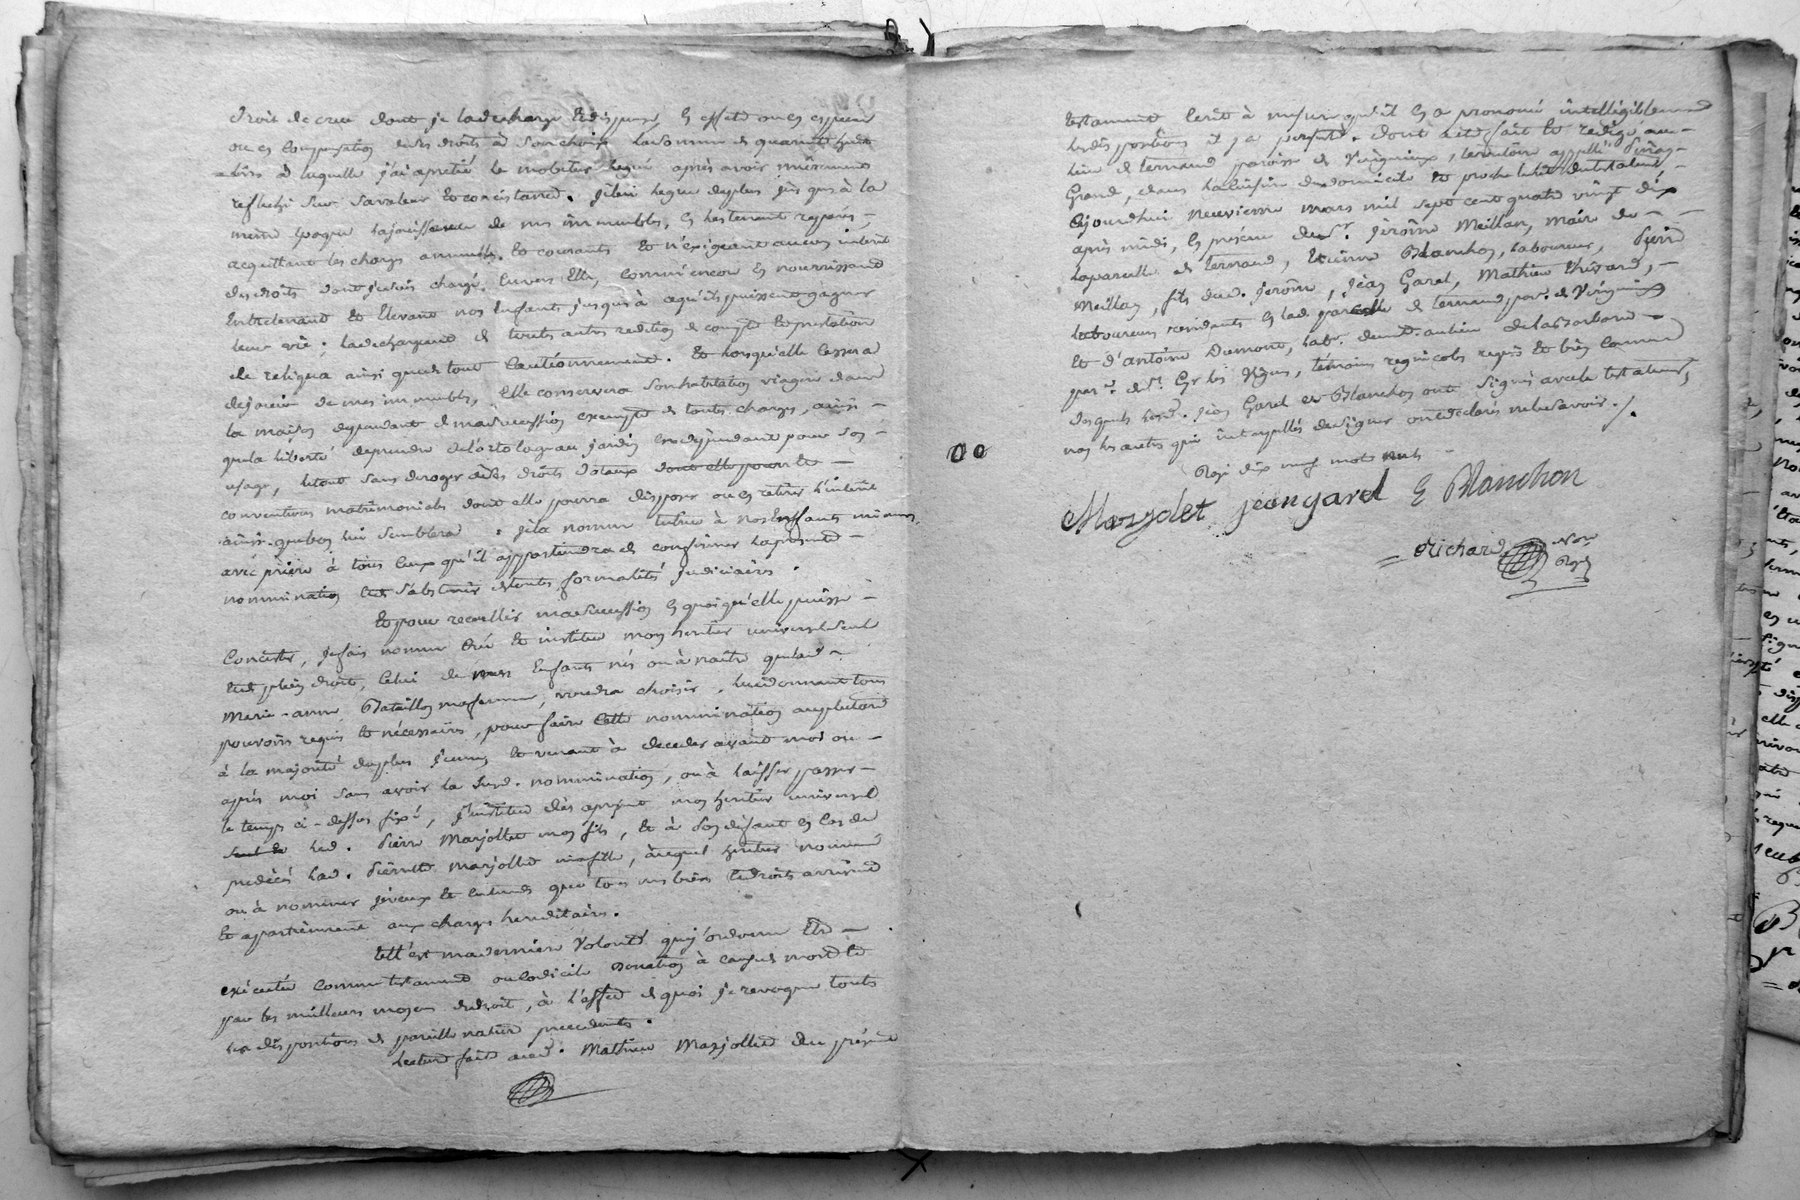 droit de crue dont je la decharge et dispense, en effets ou en especes
ou en compensation de ses droits à son choix la somme de quarante huit
livres à laquelle j'ai apretié le mobilier legué après avoir mûrement
reflechi sur sa valeur et consistance. Je lui legue de plus jusques à la
même epoque la jouissance de mes immeubles, en les tenant reparés,
acquittant les charges annuelles et courants et n'exigeant aucun interêt
des droits dont je suis chargé envers elle, comm'encor en nourrissant
entretenant et elevant nos enfants jusques à ce qu'ils puissent gagner
leur vie; la dechargeant de toutes autres reddition de compte et prestation
de reliqua ainsi que de tout cautionnement. Et lorsqu'elle cessera
de jouir de mes immeubles, elle conservera son habitation viagere dans
la maison dependant de ma succession exempte de toutes charges, ainsi
que la liberté de prendre de l'ortolage au jardin en dependant pour son
usage, le tout sans deroger à ses droits dotaux dont elle pourra et
conventions matrimoniales dont elle pourra disposer ou en retirer l'interêt
ainsi que bon lui semblera. Je la nomme tutrice à nos enfants mineurs,
avec prière à tous ceux qu'il appartiendra de confirmer la presente
nomination et de s'abstenir de toutes formalités judiciaires.
Et pour recueillir ma succession en quoi qu'elle puisse
consister, je fais nomme crée et institue mon heritier universel seul
et de plein droit, celui de mes enfants nés ou à naitre que lad.
Marie-anne Bataillon ma femme, voudra choisir, lui donnant tous
pouvoirs requis et nécessaires, pour faire cette nomination au plus tard
à la majorité du plus jeune, et venant à deceder avant moi ou
après moi sans avoir fait lad. nomination, ou à laisser passer
le temps ci-dessus fixé, j'institue dès apresent mon heritier universel
seul et led. Pierre Marjollet mon fils, et à son defaut en cas de
predécès lad. Pierrette Marjollet ma fille, auquel heritier nommé
ou à nommer je veux et entends que tous mes biens et droits arrivent
et appartiennent aux charges hereditaires.
Tell'est ma derniere volonté que j'ordonne être
exécutée comme testament ou codicile donation à cause de mort et
par les meilleurs moyens de droit, à l'effet de quoi je revoque toutes
les dispositions de pareille nature precedentes.
Lecture faite aud. Mathieu Marjollet du présent
testament ecrit à mesure qu'il en a prononcé intelligiblement
les dispositions il y a persisté. Dont acte fait et redigé au
lieu de Ternand paroisse de Virigneux, territoire appellé
Grand, dans la cuisine du domicile et proche le lit du testateur
cejourdhui neuvieme mars mil sept cent quatre vingt dix
après midi, en presence de Sr. Jerôme Meillan, maire de
la parcelle de Ternand, Etienne Blanchon, laboureur, Pierre
Meillan, fils dud. Jerome, Jean Garel, Mathieu Thivard,
laboureurs residants en lad. parcelle de Ternand par. de Virigneux
et d'antoine Dumont, lab. demt. au lieu de la Barbarie
par. de St. Cyr les Vignes, témoins regnicoles requis et bien connus
desquels lesd. Jean Garel et Blanchon ont signé avec le testateur,
non les autres qui interpellés de signer ont declaré ne le savoir./.
Rayé dix neuf mots nuls
Marjolet jeangarel E Blanchon
Richard Nore
Royal